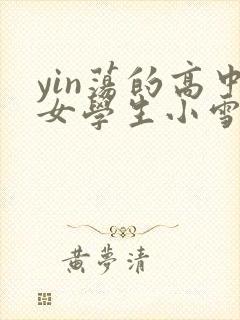 yin蕩的高中
女學生小雪
黃夢清